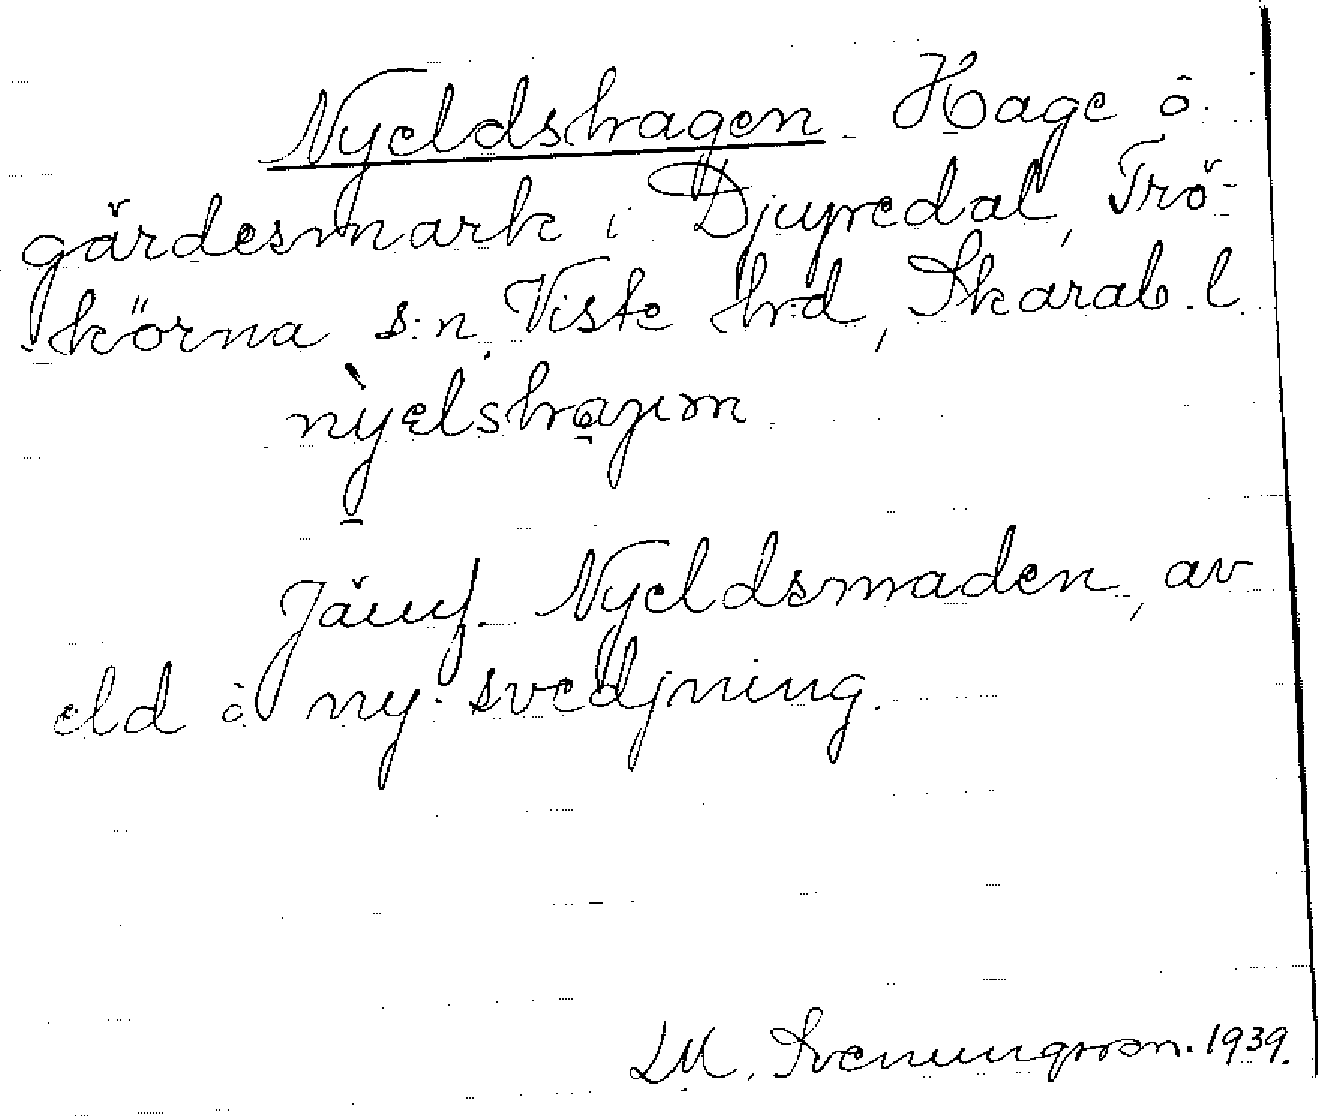 Nyeldshagen. Hage o.
gärdesmark i Djupedal, Trö-
körna s:n, Viste hrd, Skarab. l.
nỳelshagen
Jämf. Nyeldsmaden, av
eld o ny-svedjning.
LM. Svenungsson. 1939.